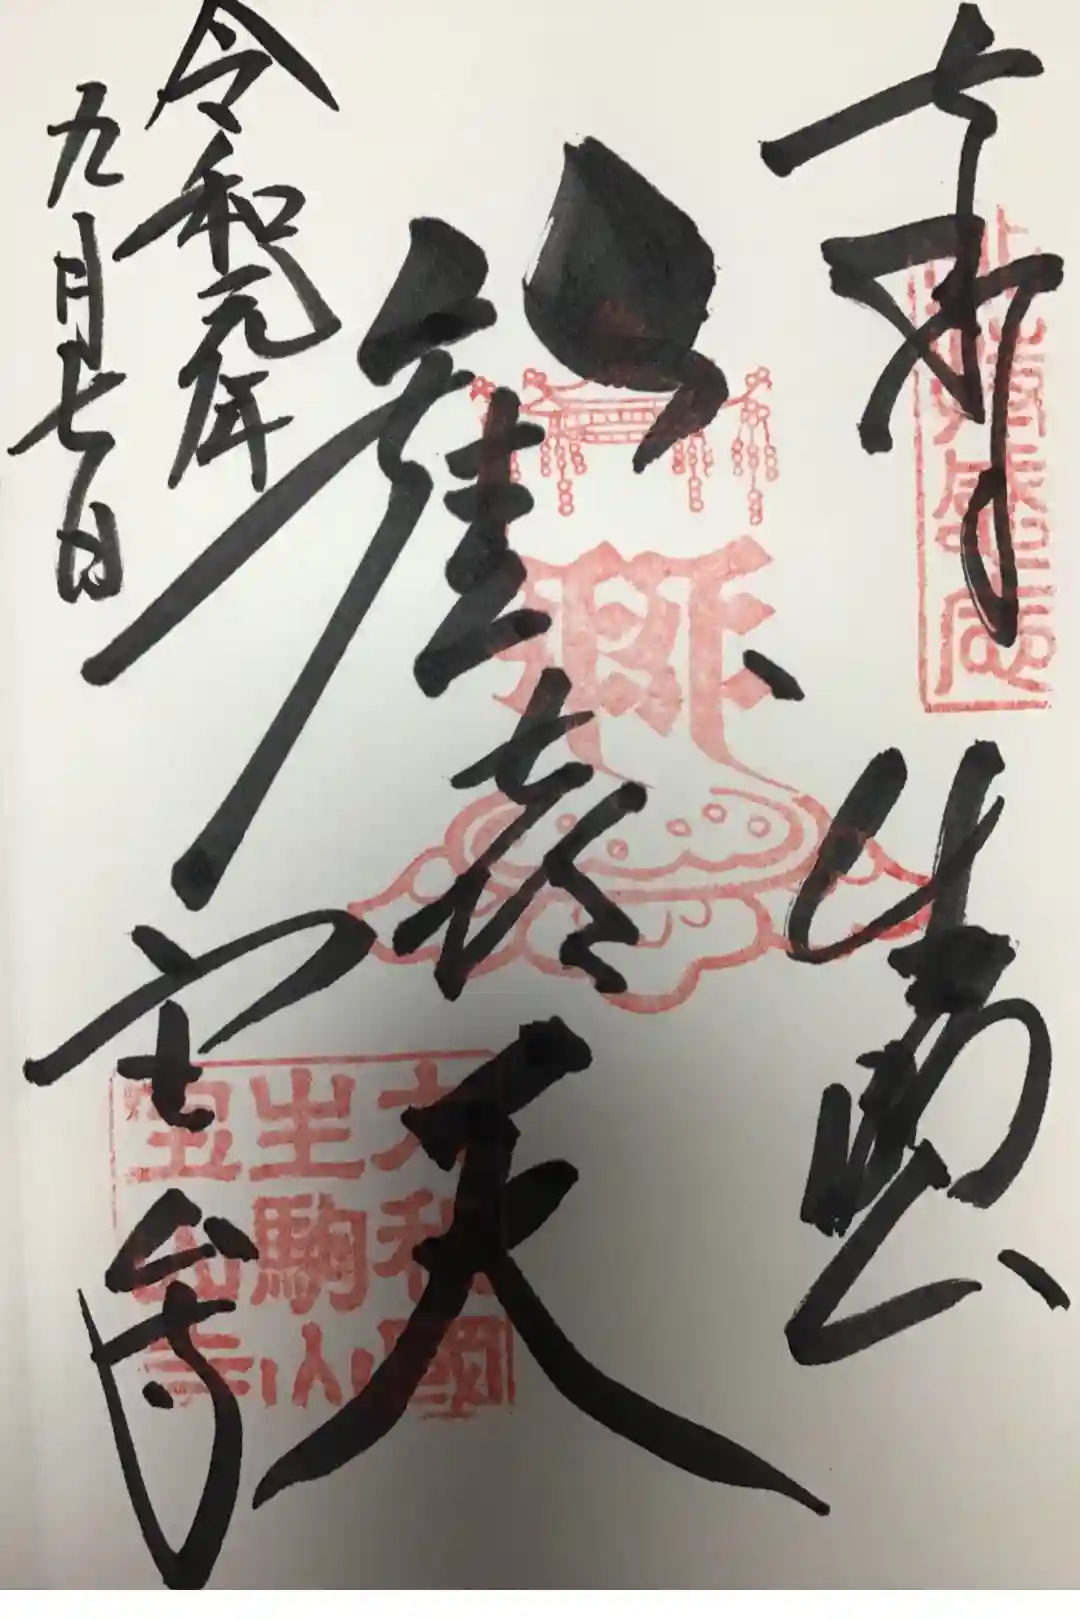 奉拝
生駒
歡喜天
宝山寺
令和元年
九月七日
大和國
生駒山
宝山寺